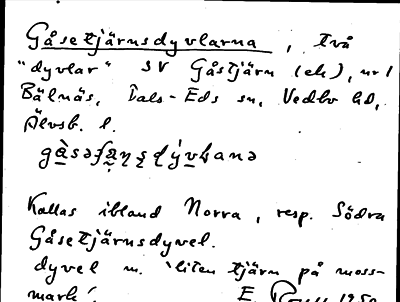 Gåsetjärnsdyvlarna, två
"dyvlar" SV Gåstjärn (ek), nr 1
Bälnäs, Dals-Eds sn, Vedbo hd,
Älvsb. l.
Kallas ibland Norra, resp. Södra
Gåsetjärnsdyvel.
dyvel m. 'liten tjärn på moss-
mark'. E.